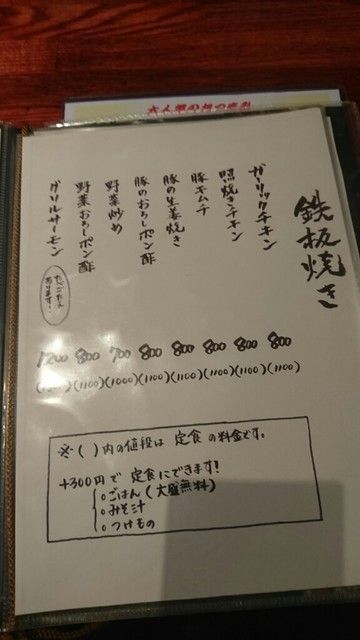 鉄板焼き
ガーリックチキン
照焼きチキン
豚キムチ
豚の生姜焼き
豚のおろしポン酢
野菜炒め
野菜おろしポン酢
グリルサーモン
800 (1100)
800 (1100)
800 (1100)
800 (1100)
800 (1100)
700 (1000)
800 (1100)
1200
※( )内の値段は 定食 の料金です。
+300円で 定食にできます!
○ごはん(大盛無料)
○みそ汁
○つけもの